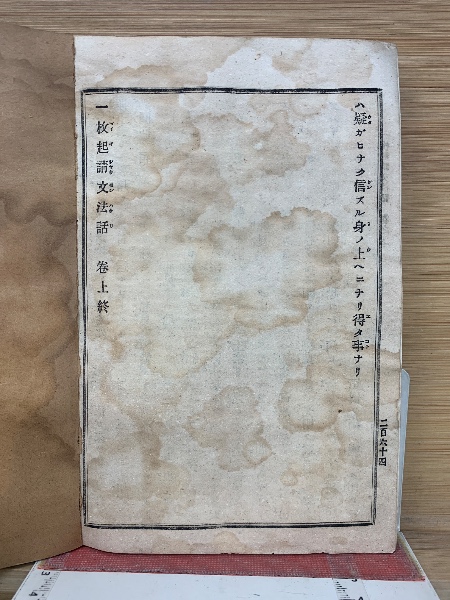 ハ疑ガヒナク信ズル身ノ上ヘニナリ得タ事ナリ
一枚起請文法話 卷上終
二百六十四